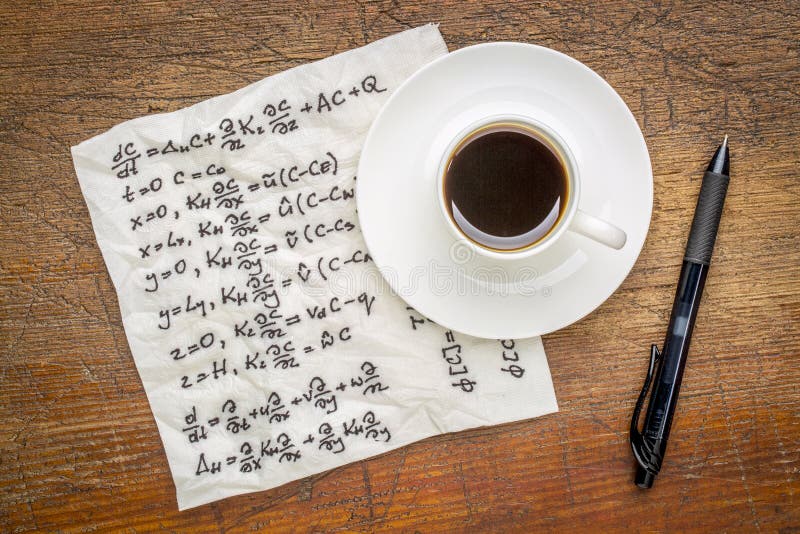 dC/dt = Δ_H C + ∂/∂z K_z ∂C/∂z + AC + Q
t=0 C = C₀
x=0, K_H ∂C/∂x = ũ(C-C_E)
x=Lx, K_H ∂C/∂x = û(C-C_W
y=0, K_H ∂C/∂y = ṽ(C-C_S
y=Ly, K_H ∂C/∂y = v̂(C-C_N
z=0, K_z ∂C/∂z = v_d C - q
z=H, K_z ∂C/∂z = ŵC
d/dt = ∂/∂t + u ∂/∂x + v ∂/∂y + w ∂/∂z
Δ_H = ∂/∂x K_H ∂/∂x + ∂/∂y K_H ∂/∂y
φ[C]=
φ[C]=
dreamstime